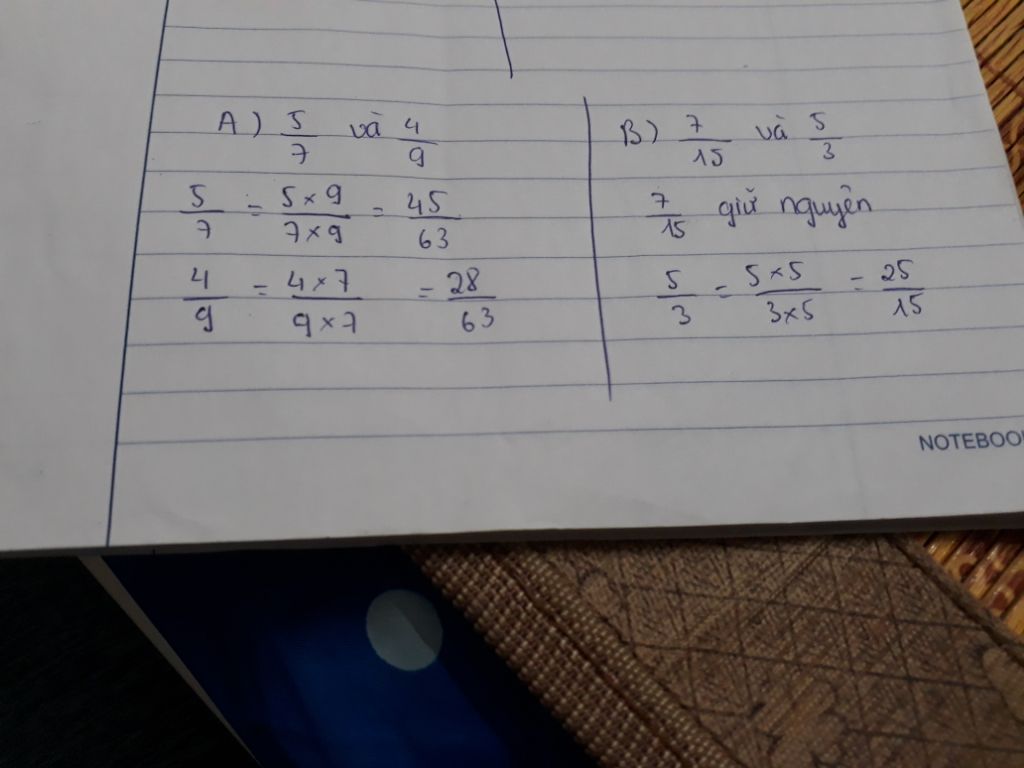 A) 5/7 và 4/9
5/7 = 5×9/7×9 = 45/63
4/9 = 4×7/9×7 = 28/63
B) 7/15 và 5/3
7/15 giữ nguyên
5/3 = 5×5/3×5 = 25/15